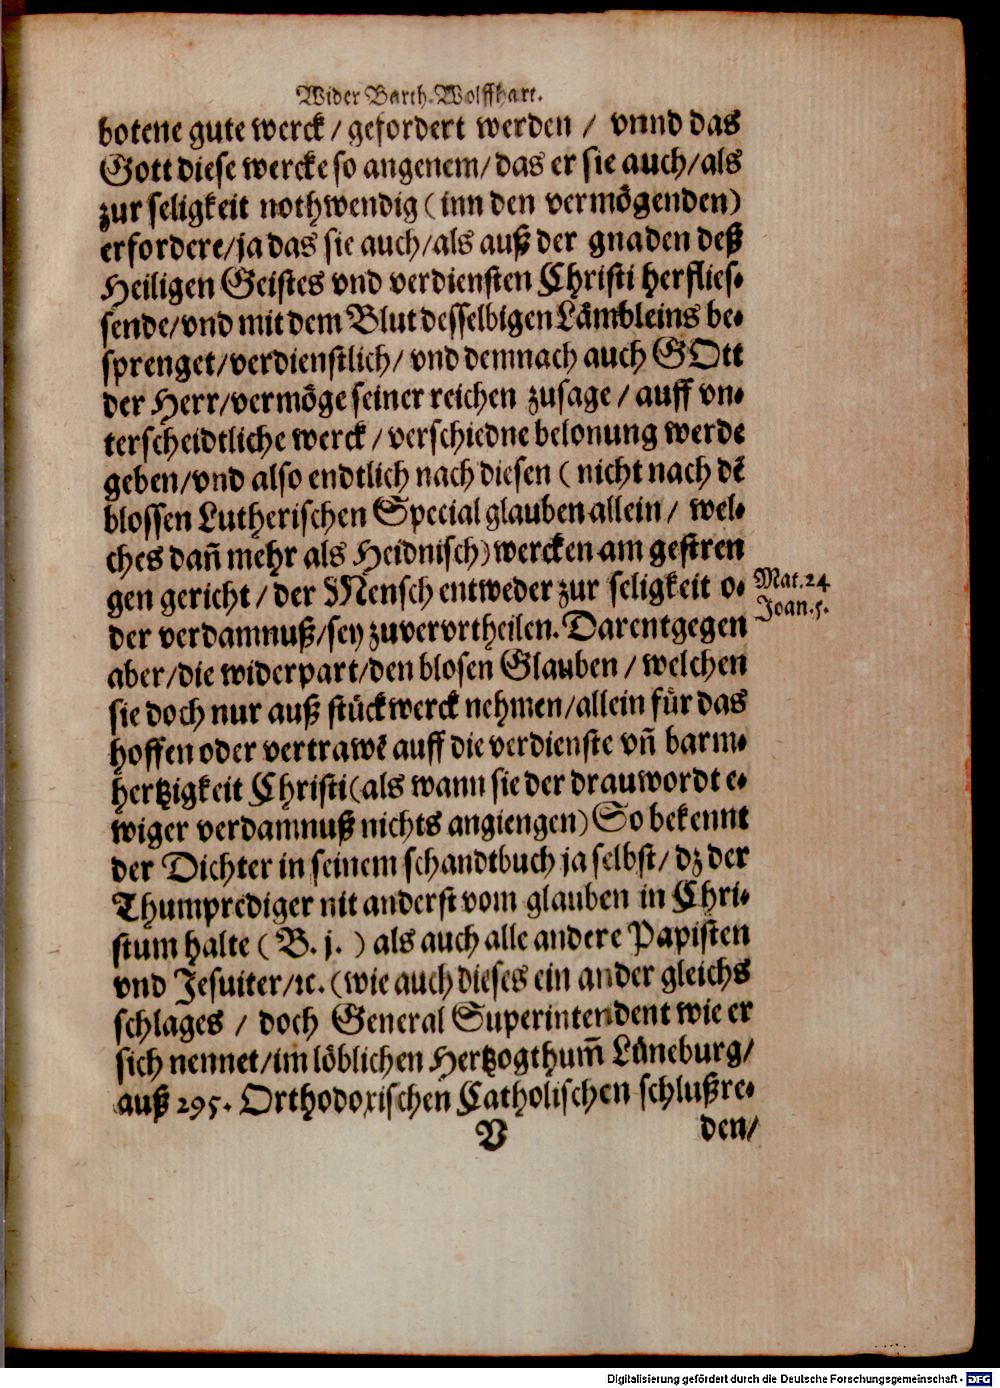 Wider Barth. Wolffhart.
botene gute werck / gefordert werden / vnnd das
Gott diese wercke so angenem / das er sie auch / als
zur seligkeit nothwendig ( inn den vermögenden )
erfordere / ja das sie auch / als auß der gnaden deß
Heiligen Geistes vnd verdiensten Christi herflies-
sende / vnd mit dem Blut desselbigen Lämbleins be-
sprenget / verdienstlich / vnd demnach auch GOtt
der Herr / vermöge seiner reichen zusage / auff vn-
terscheidtliche werck / verschiedne belonung werde
geben / vnd also endtlich nach diesen ( nicht nach dẽ
blossen Lutherischen Special glauben allein / wel-
ches dañ mehr als Heidnisch ) wercken am gestren
gen gericht / der Mensch entweder zur seligkeit o-
der verdamnuß / sey zuvervrtheilen. Darentgegen
aber / die widerpart / den blosen Glauben / welchen
sie doch nur auß stückwerck nehmen / allein für das
hoffen oder vertrawẽ auff die verdienste vñ barm-
hertzigkeit Christi ( als wann sie der drauwordt e-
wiger verdamnuß nichts angiengen ) So bekennt
der Dichter in seinem schandtbuch ja selbst / dz der
Thumprediger nit anderst vom glauben in Chri-
stum halte ( B. j. ) als auch alle andere Papisten
vnd Jesuiter / ꝛc. ( wie auch dieses ein ander gleichs
schlages / doch General Superintendent wie er
sich nennet / im löblichen Hertzogthum̃ Lüneburg /
auß 295. Orthodoxischen Catholischen schlußre-
V den /
Mat. 24
Joan. 5.
Digitalisierung gefördert durch die Deutsche Forschungsgemeinschaft - DFG